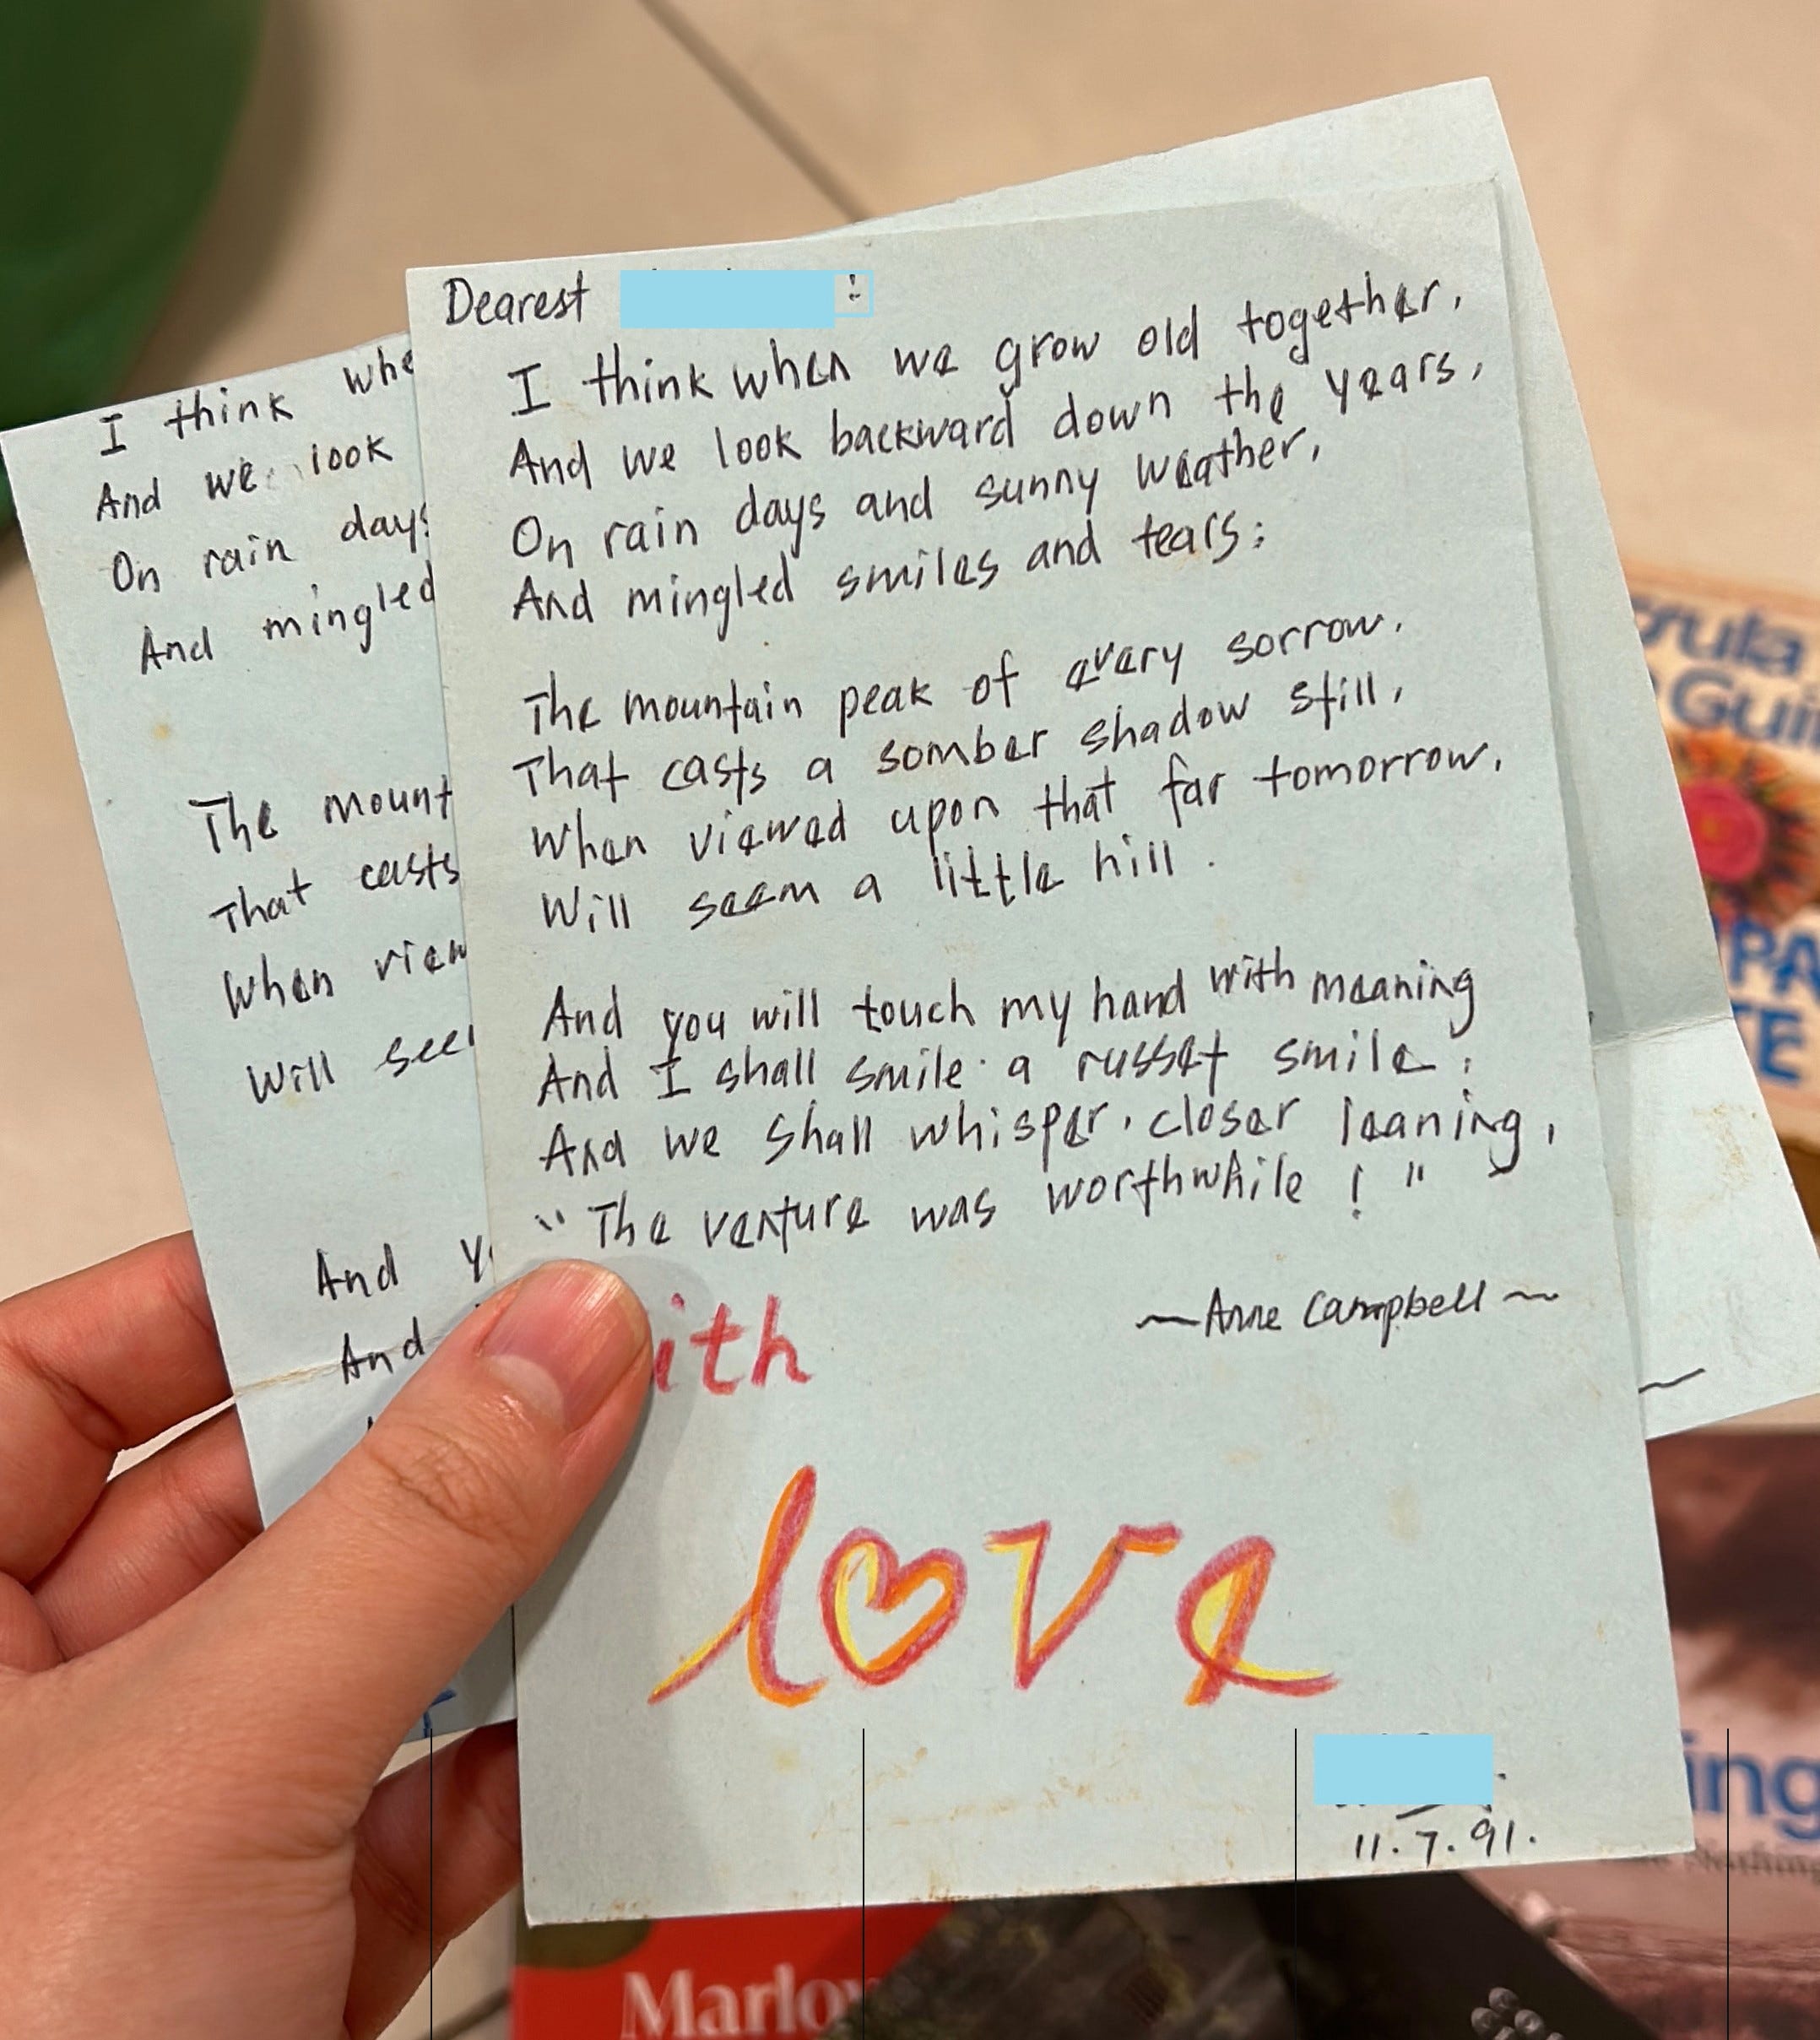 Dearest :
I think when we grow old together,
And we look backward down the years,
On rain days and sunny weather,
And mingled smiles and tears;
The mountain peak of every sorrow,
That casts a somber shadow still,
When viewed upon that far tomorrow,
Will seem a little hill.
And you will touch my hand with meaning
And I shall smile a russet smile;
And we shall whisper, closer leaning,
"The venture was worthwhile!"
~Anne Campbell~
ith
love
11.7.91.
I think whe
And we look
On rain days
And mingled
The mount
That casts
When view
Will see
And y
And
Guid
PA
TE
ing
Marlow